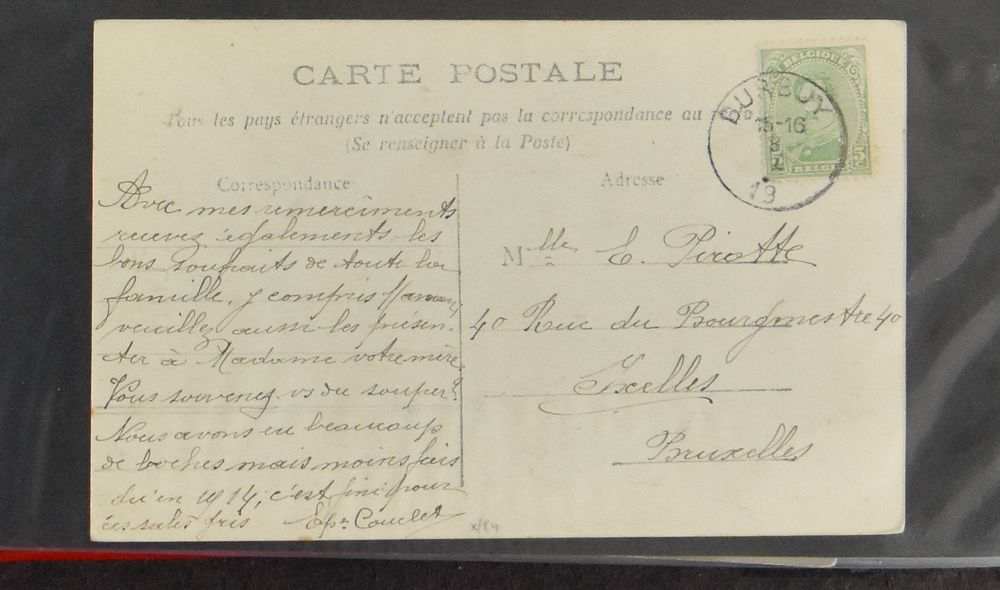 CARTE POSTALE
Tous les pays étrangers n'acceptent pas la correspondance au
(Se renseigner à la Poste)
BELGIQUE
DURBUY
15-16
8
I
19
5
BELGIE
5
Correspondance
Avec mes remerciments
recevez également les
bons souhaits de toute la
famille, y compris Maman
veuillez aussi les présen-
ter à Madame votre mère
Vous souvenez vs du souper?
Nous avons eu beaucoup
de boches mais moins fiers
qu'en 1914, c'est fini pour
ces sales gris
Adresse
Mlle E. Pirotte
40 Rue du Bourgmestre 40
Ixelles
Bruxelles